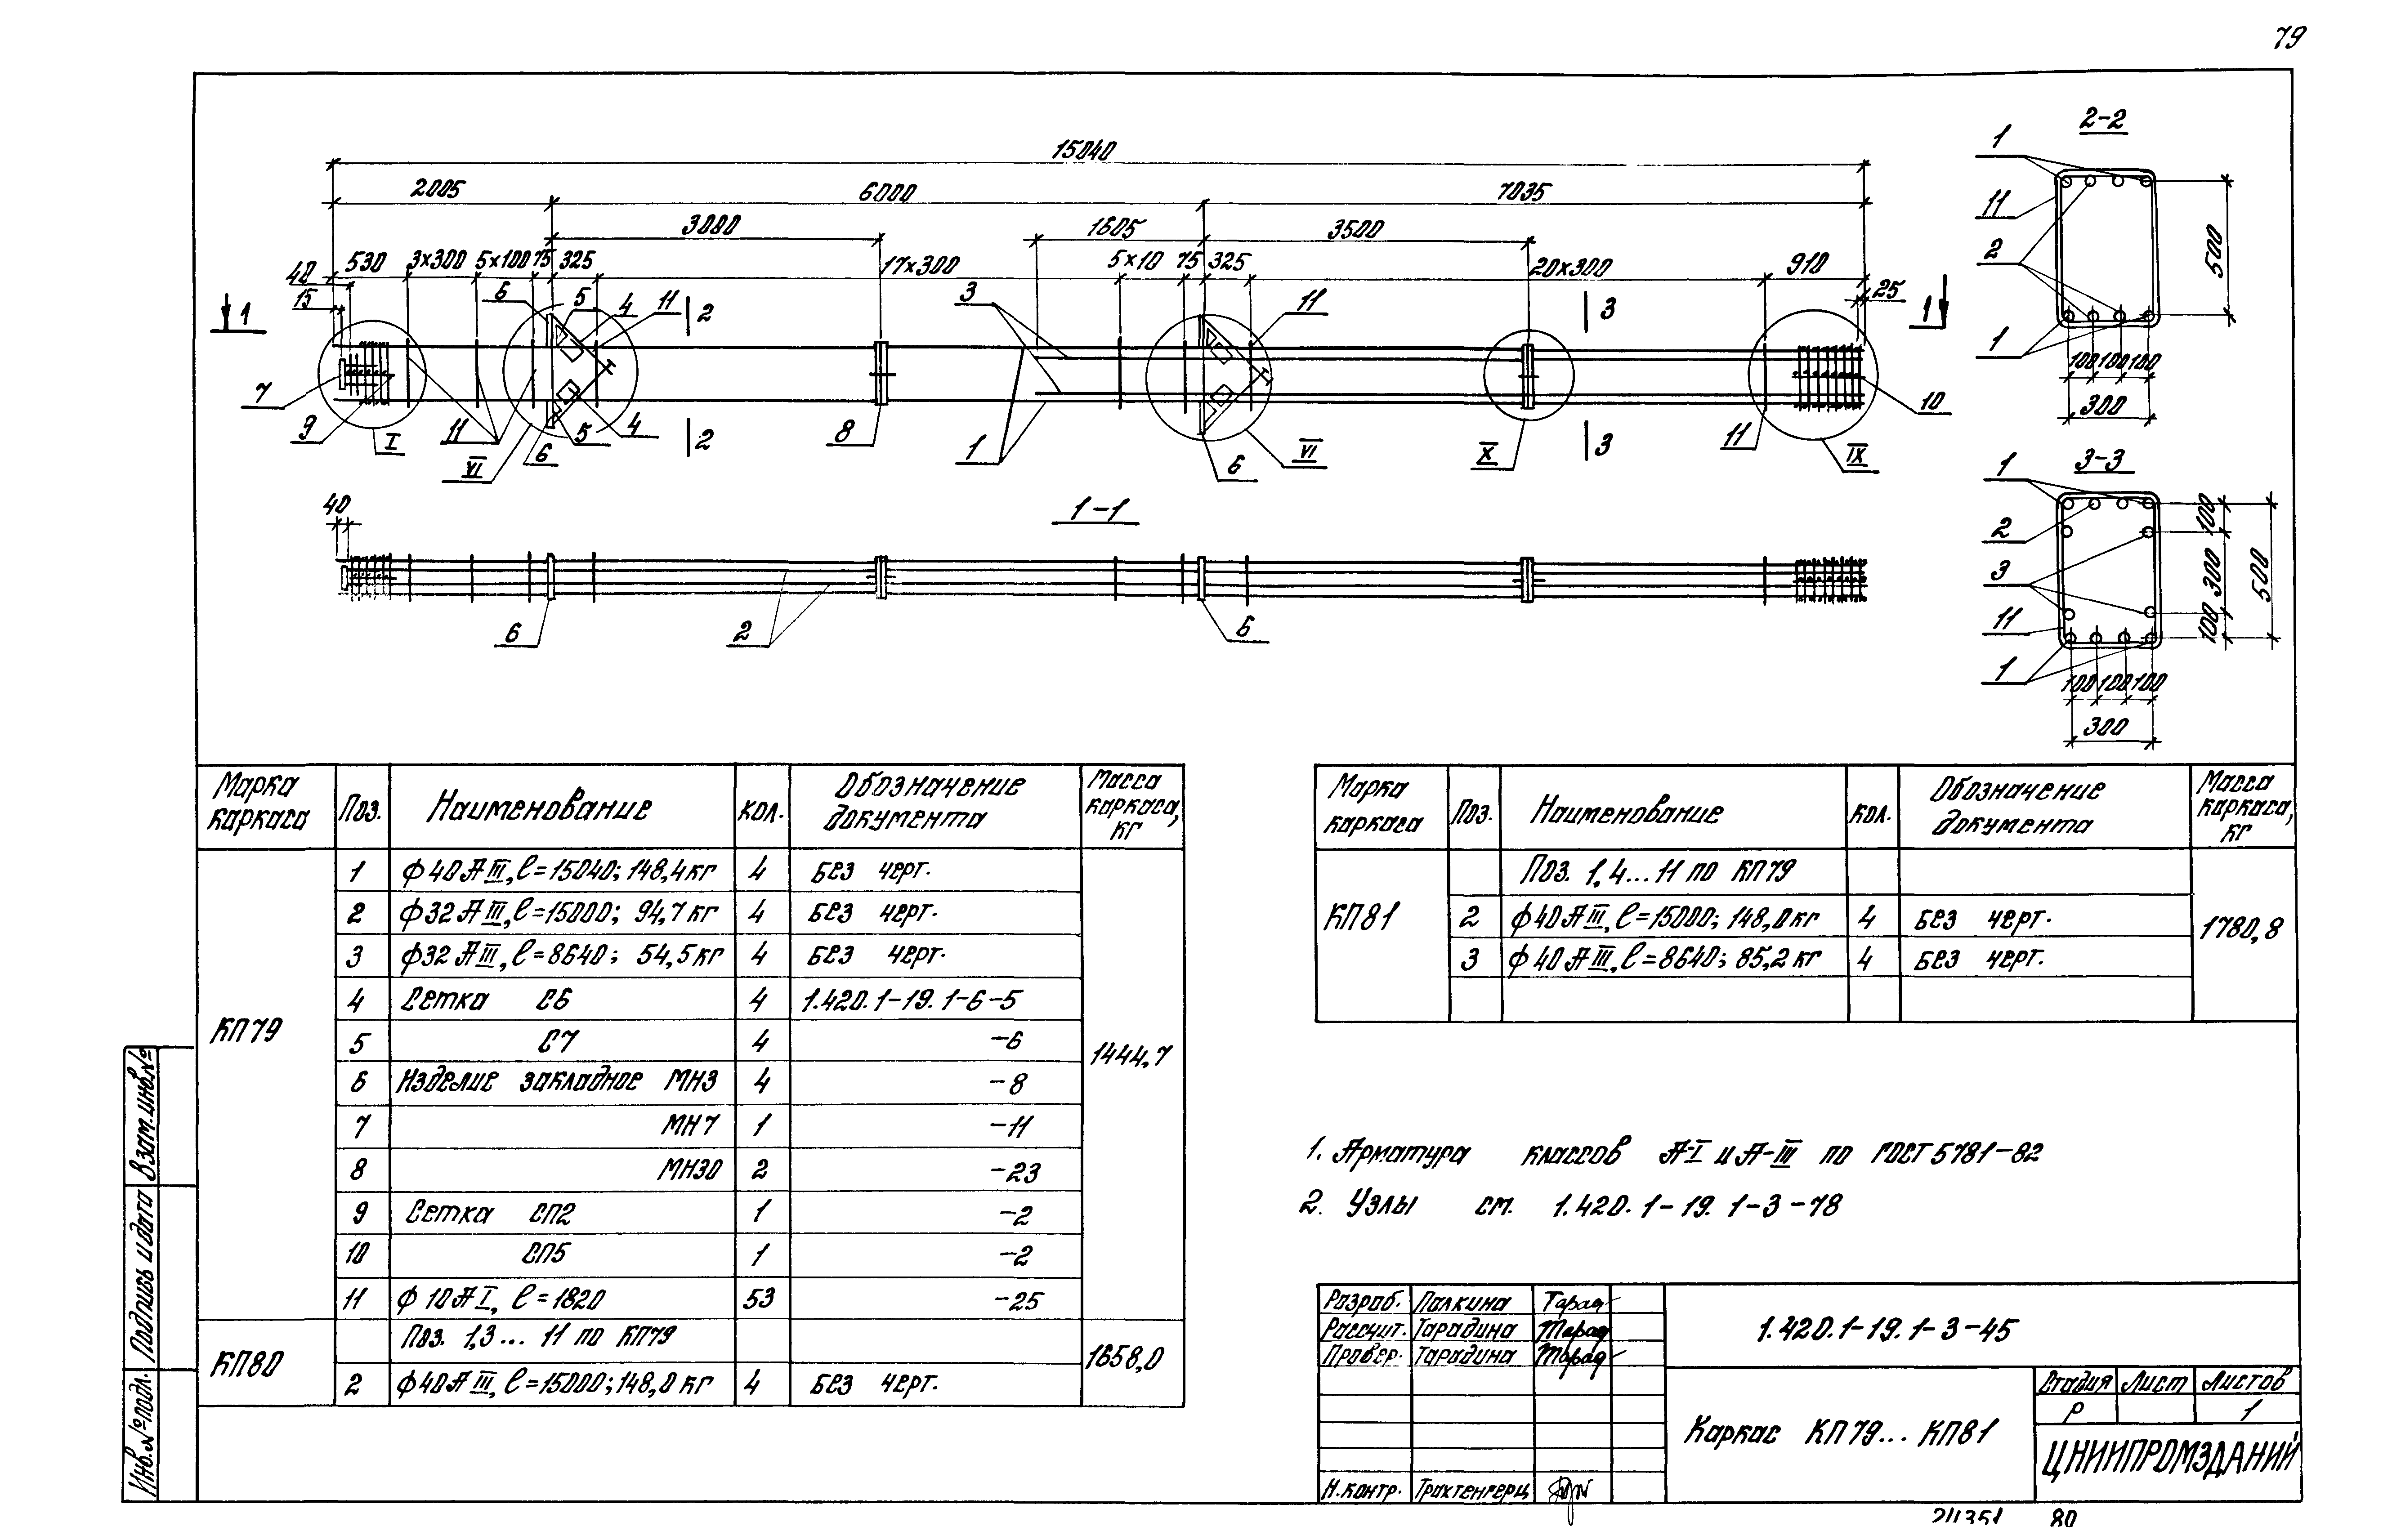 79
15040
2005 6000 7035
3000 1605 3500
40 530 3×300 5×100 75 325 17×300 5×10 75 325 20×300 910
15 25
1 6 5 4 11 2 3 11 3 1
7 9 I 11 VI 6 5 4 2 8 1 6 VI X 3 11 IX 10
1-1
40
6 2 6
2-2
1
11
2
1
500
100 100 100
300
3-3
1
2
3
11
1
100
300
100
500
100 100 100
300
Марка каркаса Поз. Наименование кол. Обозначение документа Масса каркаса, кг
КП79 1444,7
1 ф40АIII, ℓ=15040; 148,4кг 4 Без черт.
2 ф32АIII, ℓ=15000; 94,7кг 4 Без черт.
3 ф32АIII, ℓ=8640; 54,5кг 4 Без черт.
4 Сетка С6 4 1.420.1-19.1-6-5
5 С7 4 -6
6 Изделие закладное МН3 4 -8
7 МН7 1 -11
8 МН30 2 -23
9 Сетка СП2 1 -2
10 СП5 1 -2
11 ф10АI, ℓ=1820 53 -25
КП80 1658,0
Поз. 1,3... 11 по КП79
2 ф40АIII, ℓ=15000; 148,0кг 4 Без черт.
Марка каркаса Поз. Наименование кол. Обозначение документа Масса каркаса, кг
КП81 1780,8
Поз. 1,4...11 по КП79
2 ф40АIII, ℓ=15000; 148,0кг 4 Без черт.
3 ф40АIII, ℓ=8640; 85,2кг 4 Без черт.
1. Арматура классов А-I и А-III по ГОСТ 5781-82
2. Узлы см. 1.420.1-19.1-3-78
Разраб. Палкина
Рассчит. Тарадина
Провер. Тарадина
Н.контр. Трахтенгерц
1.420.1-19.1-3-45
Каркас КП79... КП81
Стадия Лист Листов
Р 1
ЦНИИПРОМЗДАНИЙ
Взам.инв.№
Подпись и дата
Инв.№ подл.
21351 80